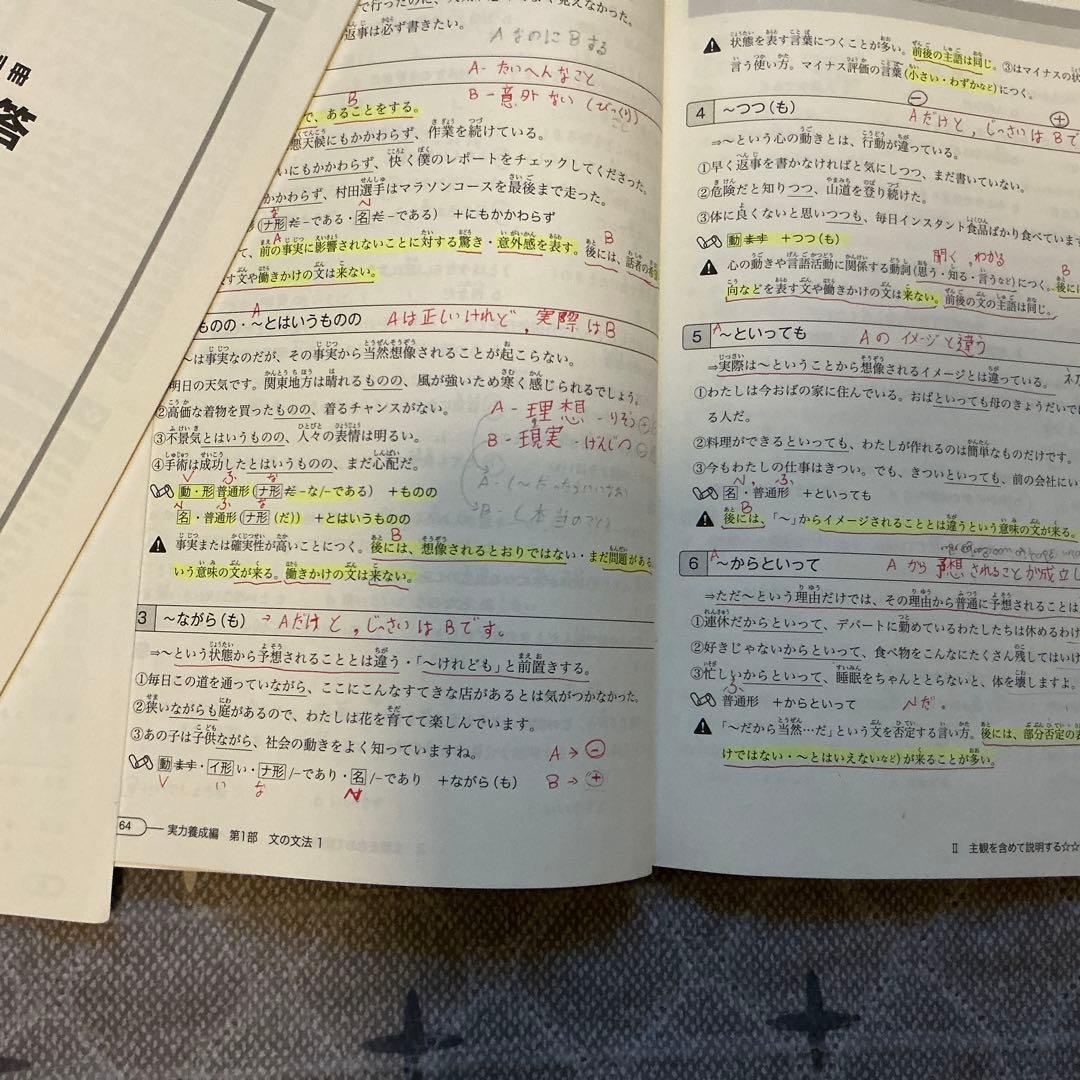 冊
答
返事は必ず書きたい。
AなのにBする
A-たいへんなこと
B-意外ない(びっくり)
B
で、あることをする。
悪天候にもかかわらず、作業を続けている。
にもかかわらず、快く僕のレポートをチェックしてくださった。
かかわらず、村田選手はマラソンコースを最後まで走った。
ナ形 だ-である・名 だ-である) +にもかかわらず
て、前の事実に影響されないことに対する驚き・意外感を表す。後には、話者の希
す文や働きかけの文は来ない。
ものの・~とはいうものの Aは正しいけれど,実際はB
~は事実なのだが、その事実から当然想像されることが起こらない。
明日の天気です。関東地方は晴れるものの、風が強いため寒く感じられるでしょう。
②高価な着物を買ったものの、着るチャンスがない。
A-理想-りそう
③不景気とはいうものの、人々の表情は明るい。
B-現実-けんじつ
④手術は成功したとはいうものの、まだ心配だ。
動・形 普通形(ナ形 だ-な/-である) +ものの
名・普通形(ナ形(だ)) +とはいうものの
事実または確実性が高いことにつく。後には、想像されるとおりではない・まだ問題がある
いう意味の文が来る。働きかけの文は来ない。
3 ~ながら(も) →Aだけと,じっさいはBです。
⇒~という状態から予想されることとは違う・「~けれども」と前置きする。
①毎日この道を通っていながら、ここにこんなすてきな店があるとは気がつかなかった。
②狭いながらも庭があるので、わたしは花を育てて楽しんでいます。
③あの子は子供ながら、社会の動きをよく知っていますね。
A→⊖
動ます・イ形い・ナ形/-であり・名/-であり +ながら(も)
B→⊕
V い な N
64 実力養成編 第1部 文の文法1
状態を表す言葉につくことが多い。前後の主語は同じ。③はマイナスの状
言う使い方。マイナス評価の言葉(小さい・わずかなど)につく。
4 ~つつ(も) Aだけと,じっさいはBで
⇒~という心の動きとは、行動が違っている。
①早く返事を書かなければと気にしつつ、まだ書いていない。
②危険だと知りつつ、山道を登り続けた。
③体に良くないと思いつつも、毎日インスタント食品ばかり食べています
動ます +つつ(も)
聞く,わかる
心の動きや言語活動に関係する動詞(思う・知る・言うなど)につく。後に
向などを表す文や働きかけの文は来ない。前後の文の主語は同じ。
5 ~といっても Aのイメージと違う
⇒実際は~ということから想像されるイメージとは違っている。
①わたしは今おばの家に住んでいる。おばといっても母のきょうだいで
る人だ。
②料理ができるといっても、わたしが作れるのは簡単なものだけです。
③今もわたしの仕事はきつい。でも、きついといっても、前の会社にい
名・普通形 +といっても
後には、「~」からイメージされることとは違うという意味の文が来る。
6 ~からといって Aから予想されることが成立し
⇒ただ~という理由だけでは、その理由から普通に予想されることは
①連休だからといって、デパートに勤めているわたしたちは休めるわけ
②好きじゃないからといって、食べ物をこんなにたくさん残してはいけ
③忙しいからといって、睡眠をちゃんととらないと、体を壊しますよ。
普通形 +からといって Nだ。
「~だから当然…だ」という文を否定する言い方。後には、部分否定の表
けではない・~とはいえないなど)が来ることが多い。
Ⅱ 主観を含めて説明する☆☆